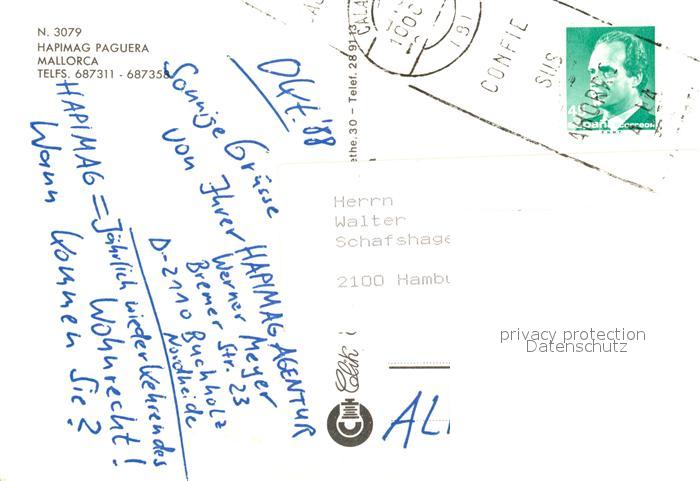 N. 3079
HAPIMAG PAGUERA
MALLORCA
TELFS. 687311 - 687358
Okt '88
Sonnige Grüsse
von Ihrer HAPIMAG AGENTUR
Werner Meyer
Bremer Str. 23
D-2110 Buchholz
Nordheide
HAPIMAG = Jährlich wiederkehrendes
Wohnrecht!
Wann kommen Sie?
the, 30 – Telef. 28 91 13
CALA
191
CONFIE
SUS
AHORROS
A LA
Herrn
Walter
Schafshage
2100 Hambu
privacy protection
Datenschutz